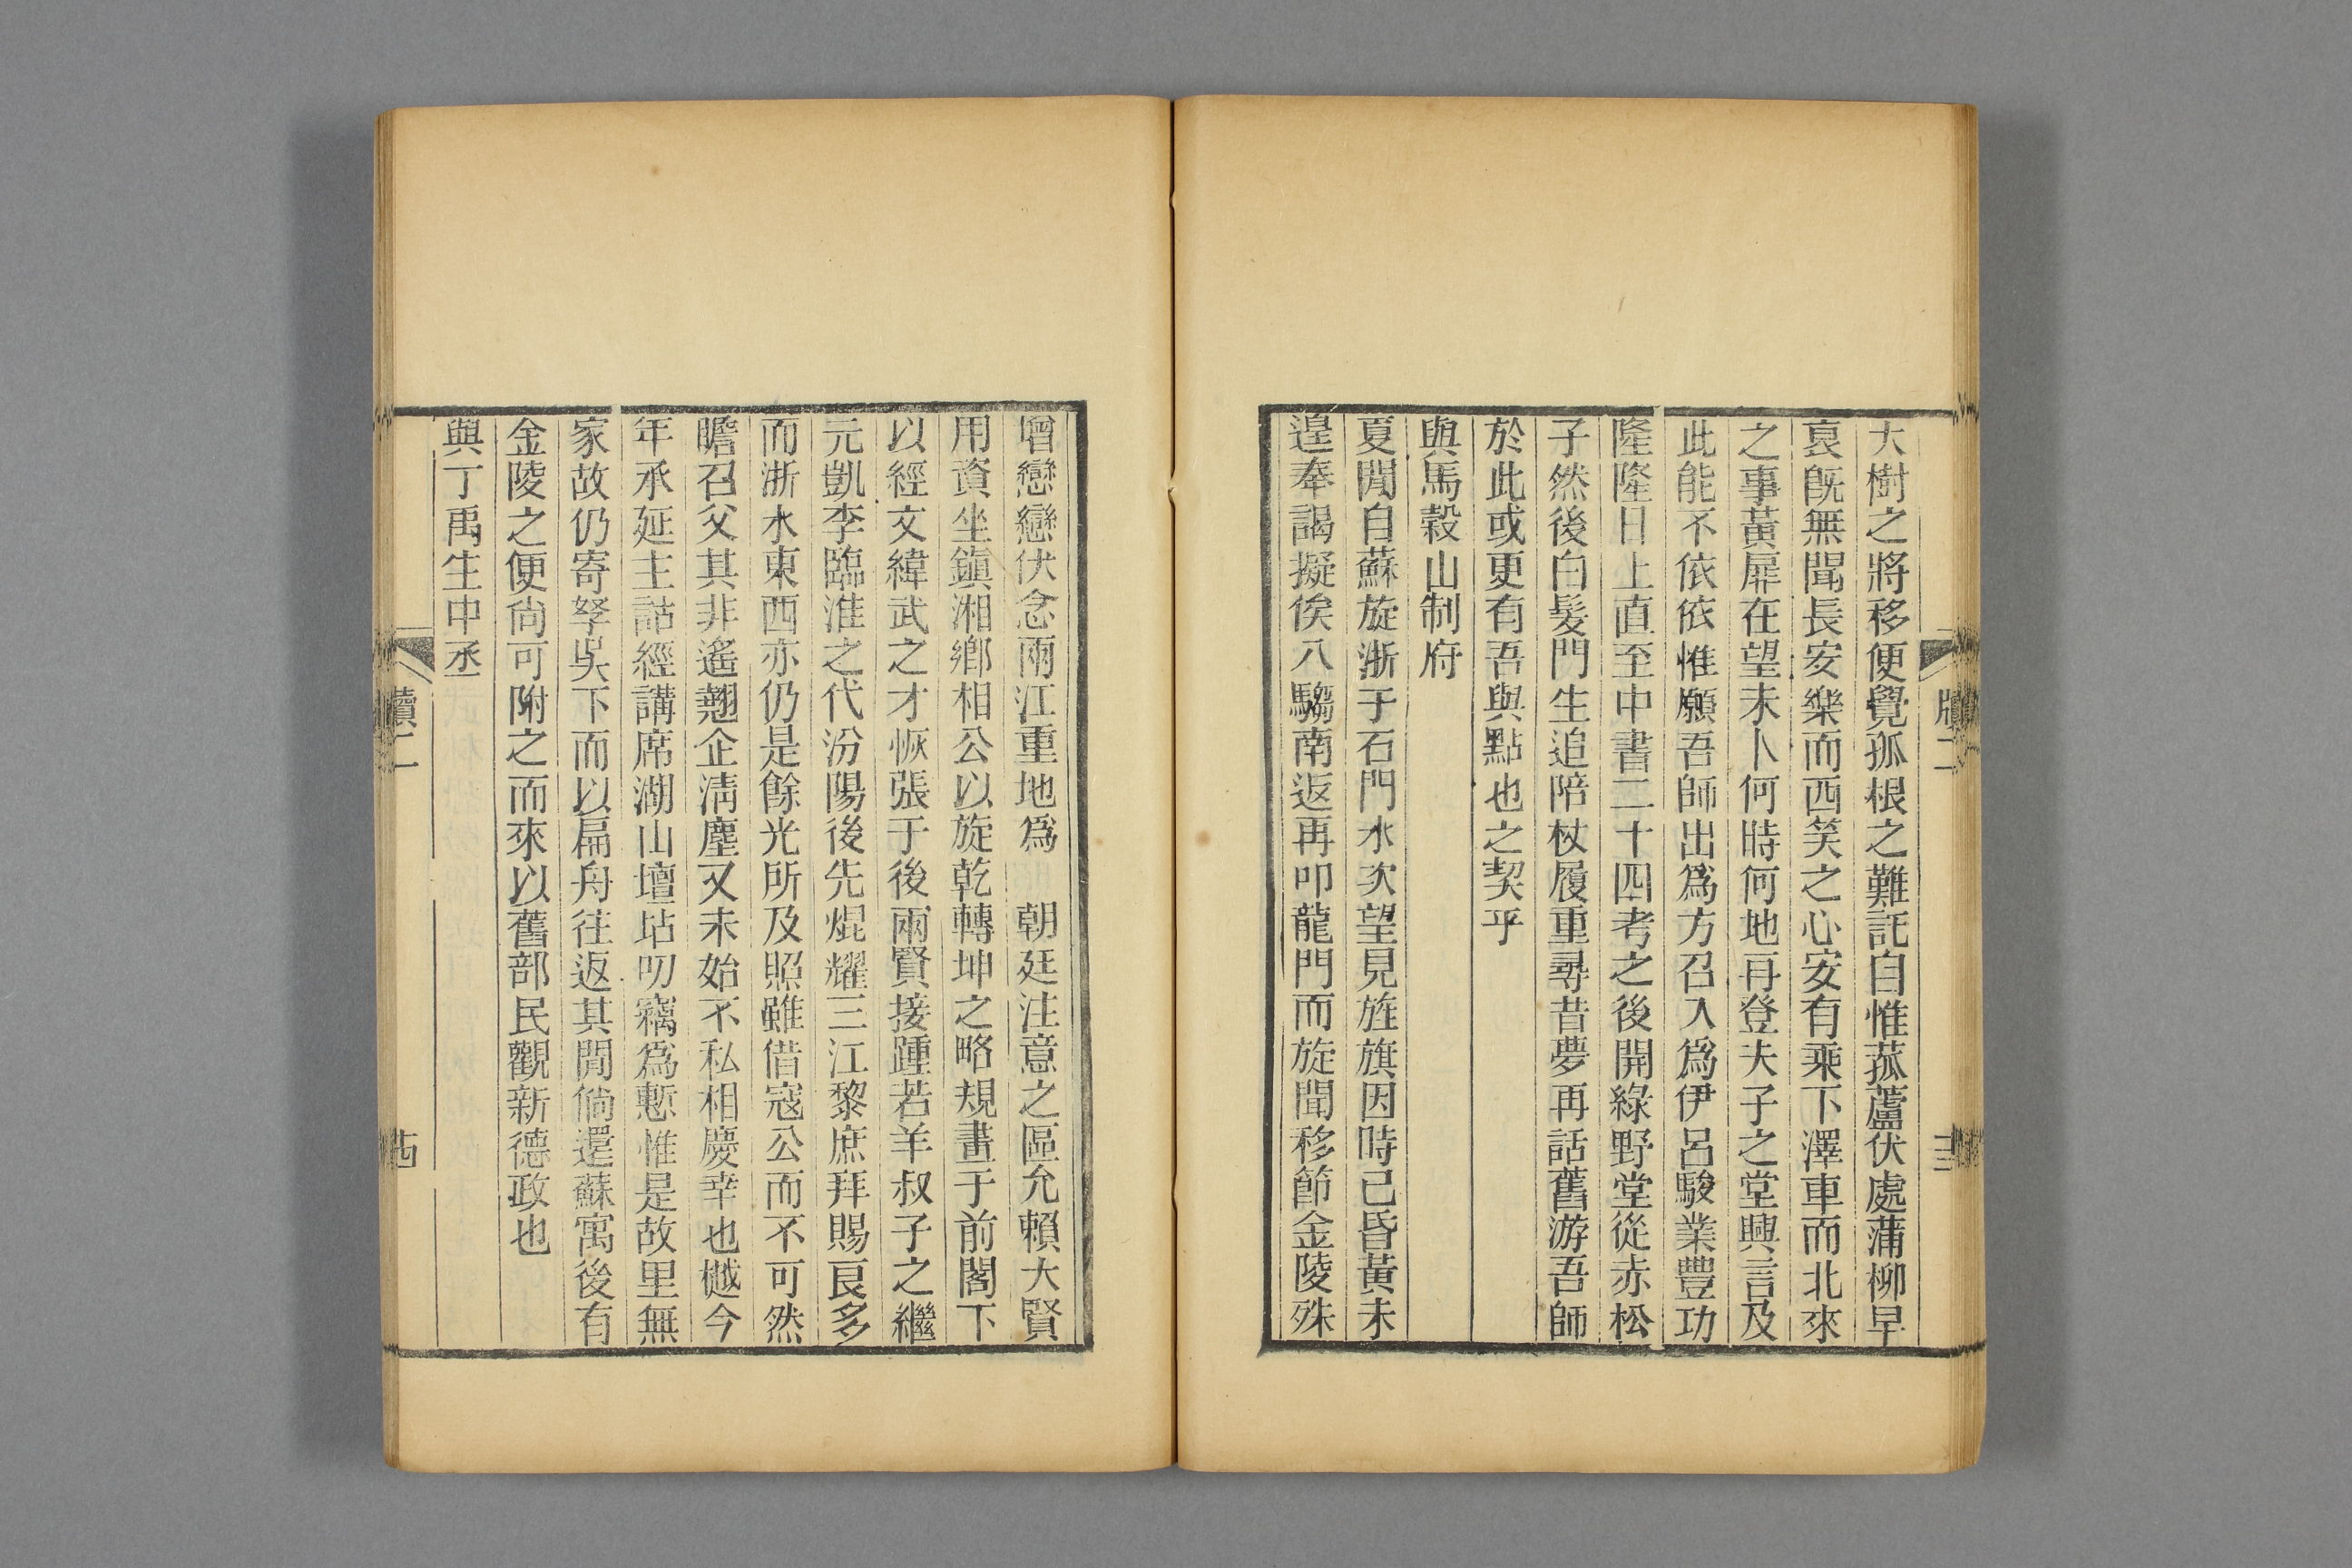 大樹之將移便覺孤根之難託自惟菰蘆伏處蒲柳早
衰旣無聞長安樂而西笑之心安有乘下澤車而北來
之事黃扉在望未卜何時何地再登夫子之堂興言及
此能不依依惟願吾師出爲方召入爲伊呂駿業豐功
隆隆日上直至中書二十四考之後開綠野堂從赤松
子然後白髮門生追陪杖履重尋昔夢再話舊游吾師
於此或更有吾與點也之契乎
與馬穀山制府
夏閒自蘇旋浙于石門水次望見旌旗因時已昏黃未
遑奉謁擬俟八騶南返再叩龍門而旋聞移節金陵殊
增戀戀伏念兩江重地爲 朝廷注意之區允賴大賢
用資坐鎭湘鄉相公以旋乾轉坤之略規畫于前閣下
以經文緯武之才恢張于後兩賢接踵若羊叔子之繼
元凱李臨淮之代汾陽後先焜耀三江黎庶拜賜良多
而浙水東西亦仍是餘光所及照雖借寇公而不可然
瞻召父其非遙翹企淸塵又未始不私相慶幸也樾今
年承延主詁經講席湖山壇坫叨竊爲慙惟是故里無
家故仍寄孥吳下而以扁舟往返其閒倘還蘇寓後有
金陵之便尙可附之而來以舊部民觀新德政也
與丁禹生中丞
牘二